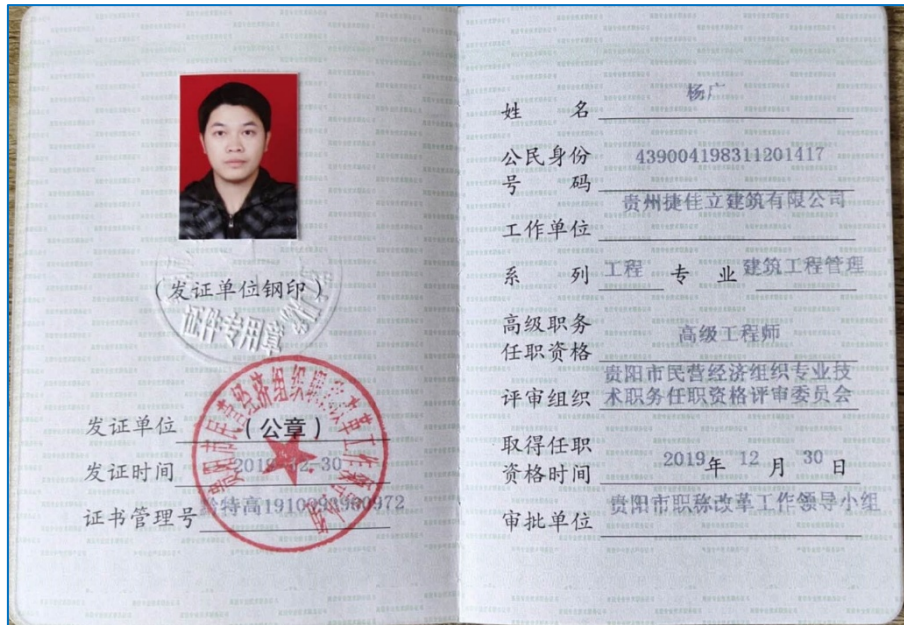 (发证单位钢印)
证件专用章
发证单位 (公章)
发证时间 2019-12-30
证书管理号
姓 名 杨广
公民身份
号 码 439004198311201417
工作单位 贵州捷佳立建筑有限公司
系 列 工程 专 业 建筑工程管理
高级职务
任职资格 高级工程师
评审组织 贵阳市民营经济组织专业技
术职务任职资格评审委员会
取得任职
资格时间 2019年 12 月 30 日
审批单位 贵阳市职称改革工作领导小组